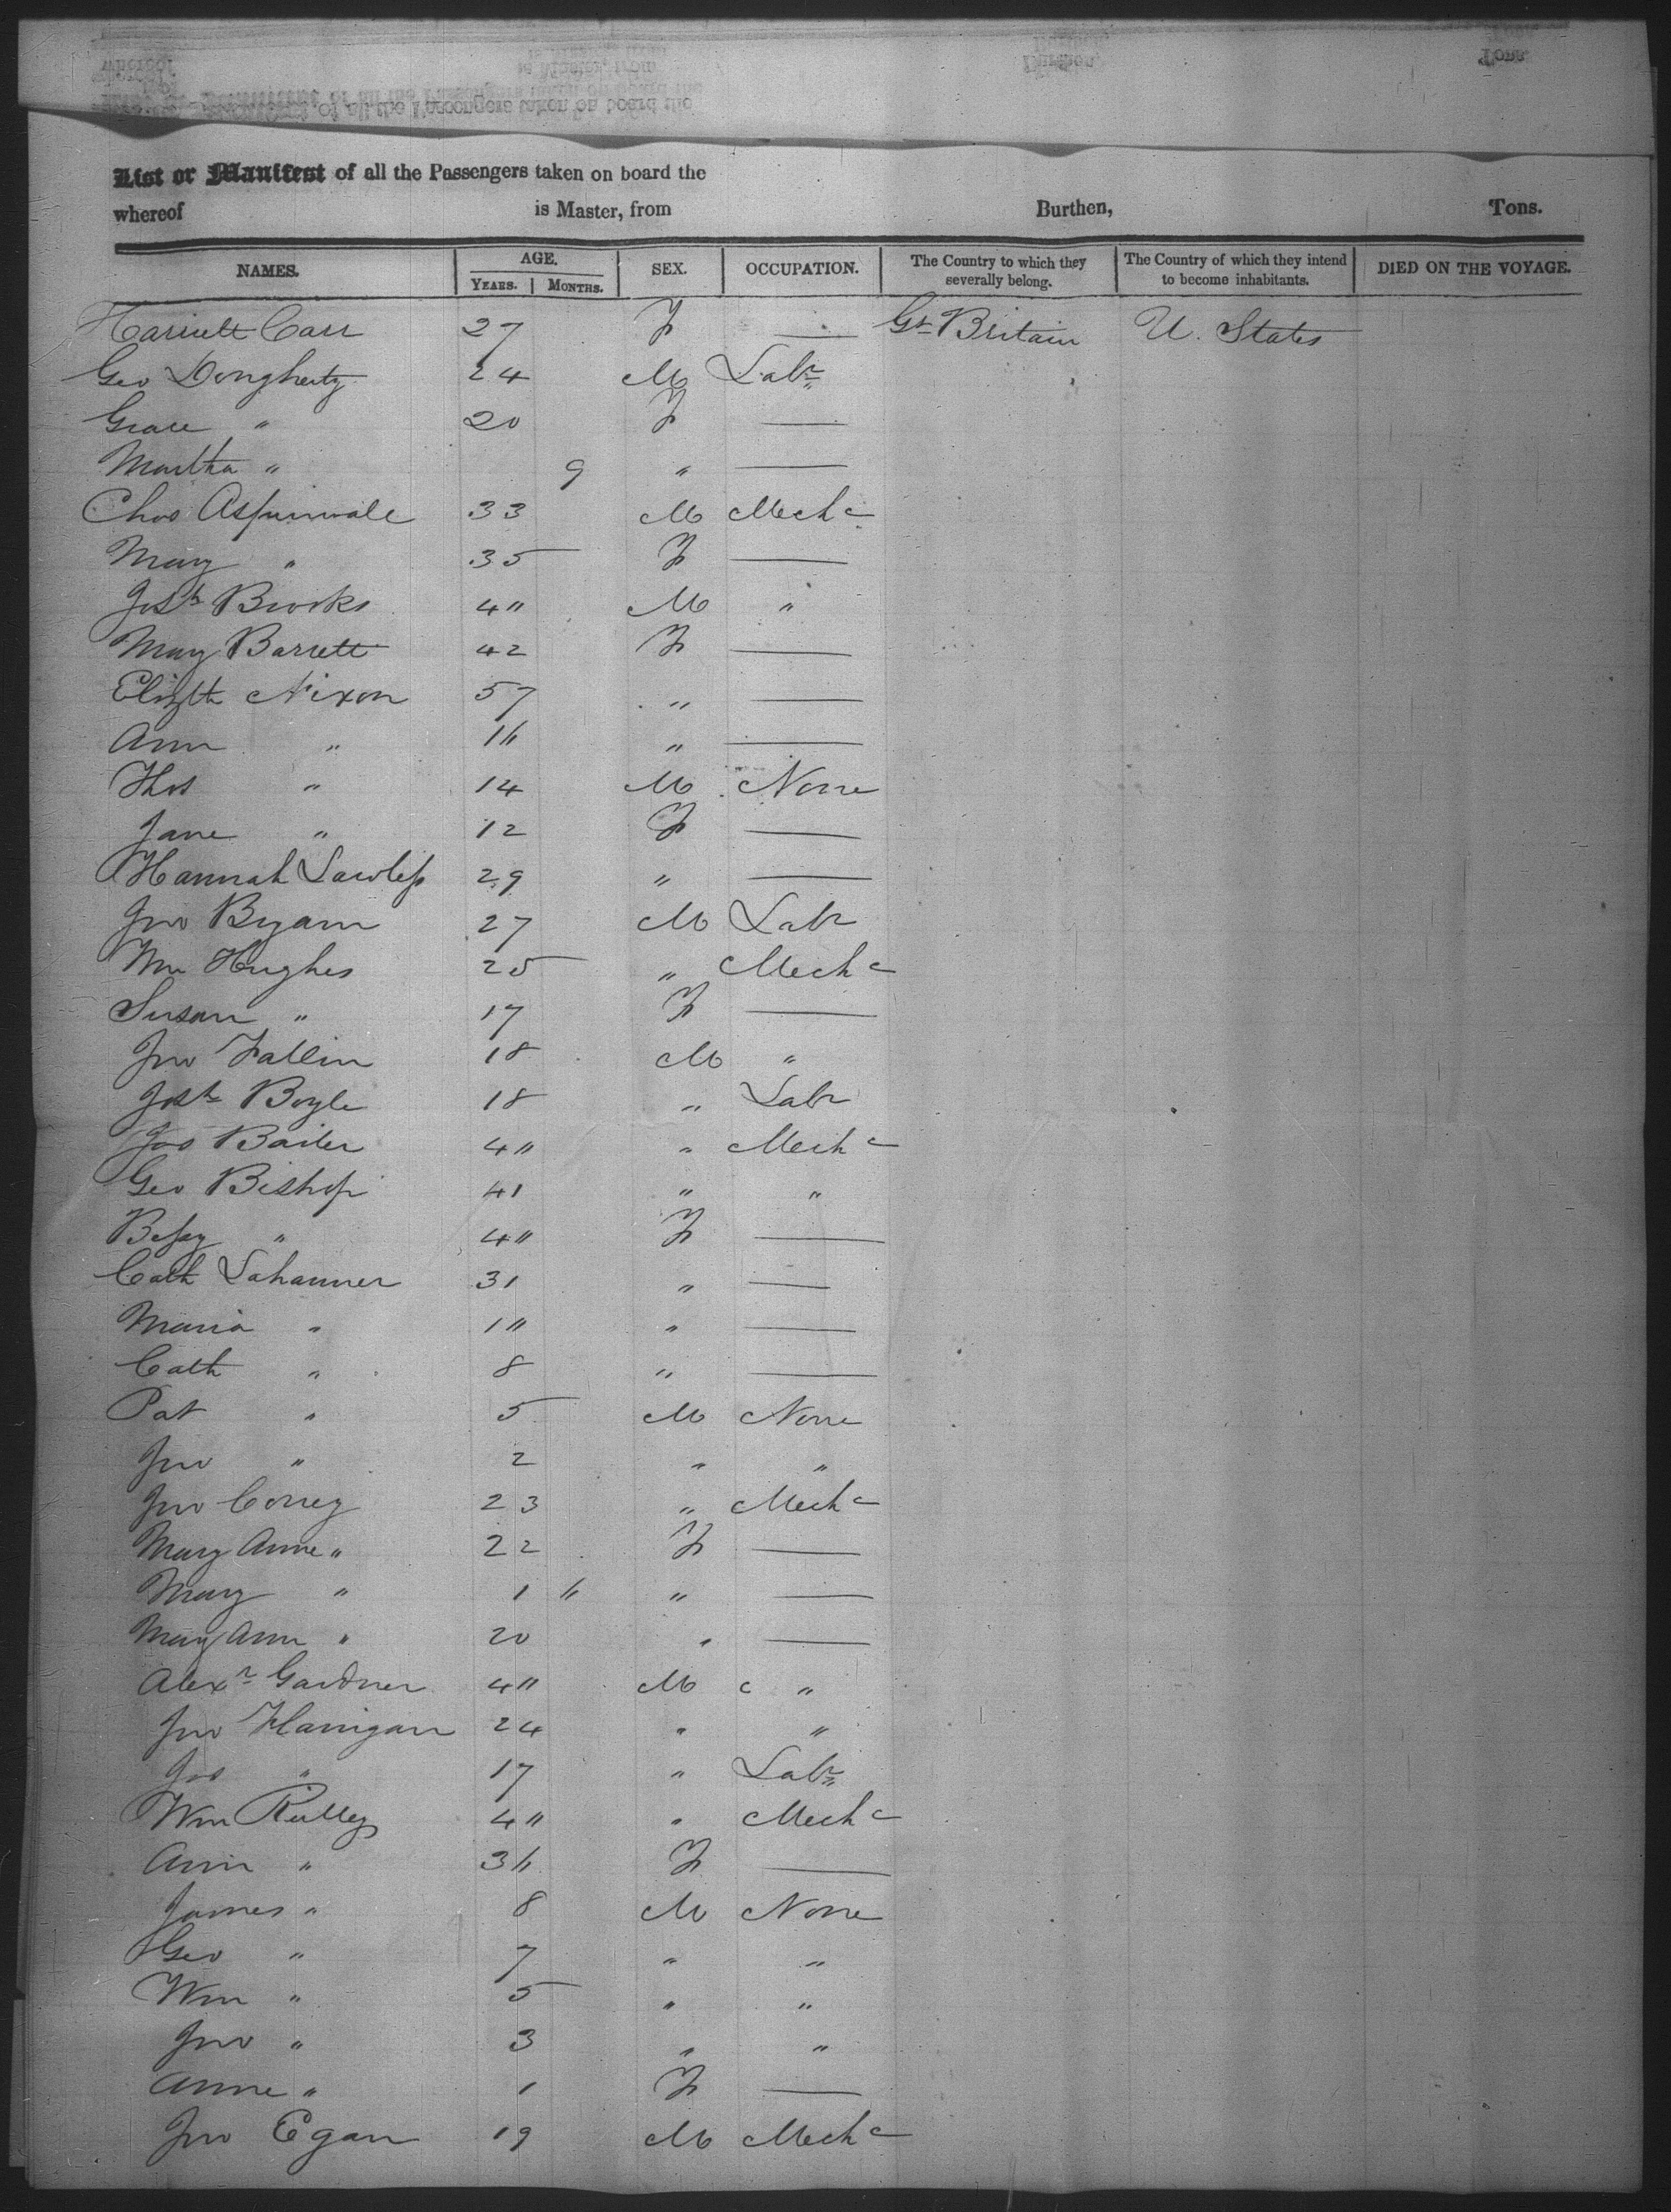 List or Manifest of all the Passengers taken on board the
whereof is Master, from Burthen, Tons.
NAMES. AGE. YEARS. MONTHS. SEX. OCCUPATION. The Country to which they severally belong. The Country of which they intend to become inhabitants. DIED ON THE VOYAGE.
Harriett Carr 27 F — Gt Britain U. States
Geo Dougherty 24 M Labr
Grace " 20 F —
Martha " 9 " —
Chas Aspinwale 33 M Mechc
Mary " 35 F —
Josh Brooks 4" M "
Mary Barrett 42 F —
Elizth Nixon 57 " —
Ann " 16 " —
Thos " 14 M None
Jane " 12 F —
Hannah Lawless 29 " —
Jno Byam 27 M Labr
Wm Hughes 25 " Mechc
Susan " 17 F —
Jno Fallin 18 M "
Josh Boyle 18 " Labr
Jas Bailer 4" " Mechc
Geo Bishop 41 " "
Bessy " 4" F —
Cath Lahanner 31 " —
Maria " 1" " —
Cath " 8 " —
Pat " 5 M None
Jno " 2 " "
Jno Correy 23 " Mechc
Mary Anne " 22 F —
Mary " 1 6 " —
Mary Ann " 20 " —
Alexr Gardner 4" M c "
Jno Flanigan 24 " "
Jas " 17 " Labr
Wm Rulley 4" " Mechc
Ann " 36 F —
James " 8 M None
Geo " 7 " "
Wm " 5 " "
Jno " 3 " "
Anne " 1 F —
Jno Egan 19 M Mechc